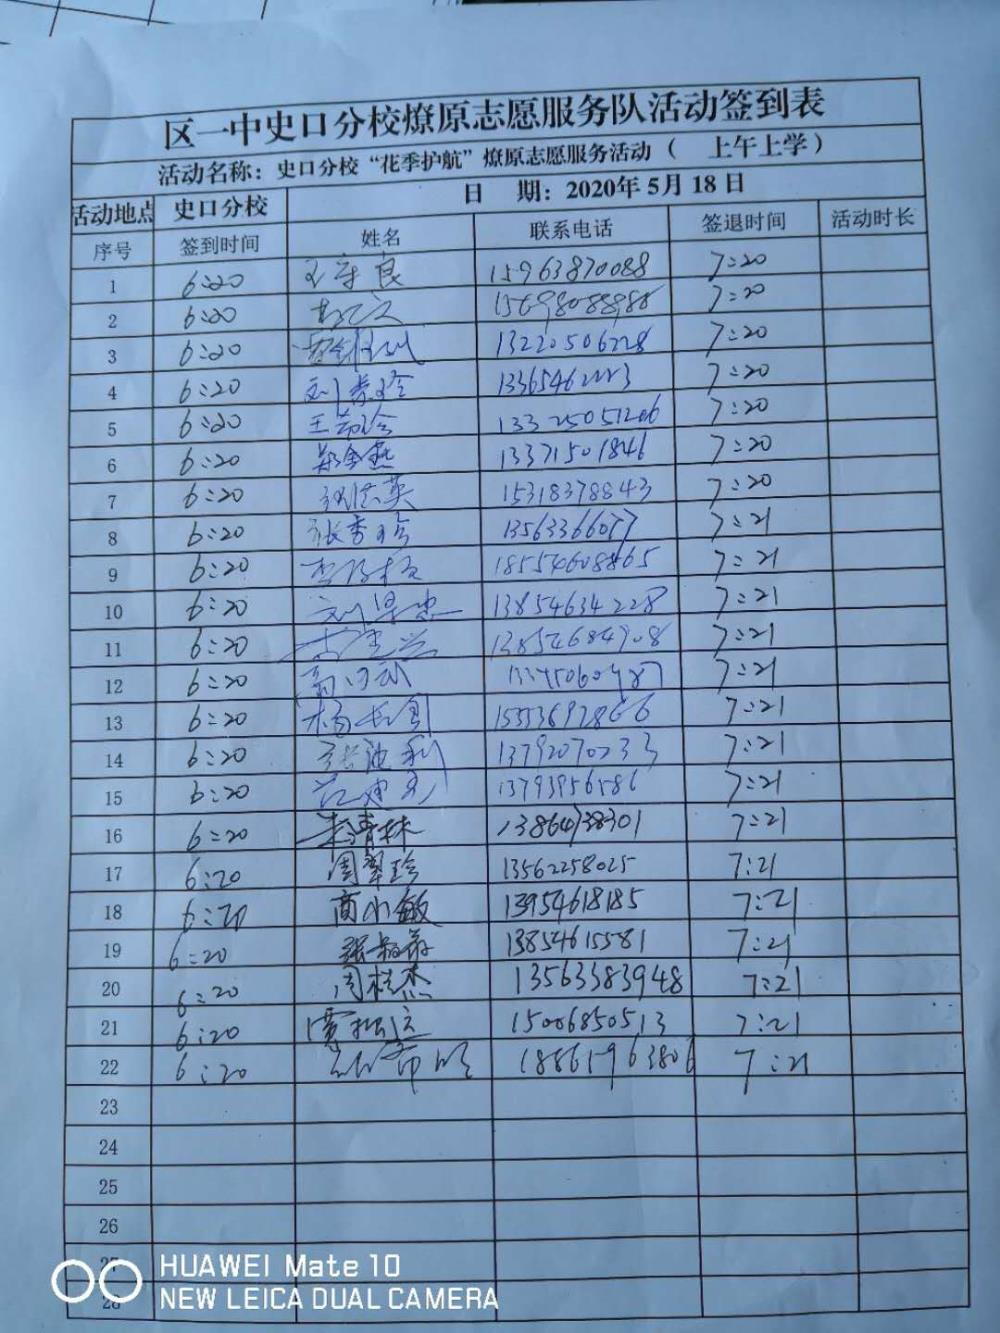 区一中史口分校燎原志愿服务队活动签到表
活动名称：史口分校“花季护航”燎原志愿服务活动（ 上午上学）
活动地点 史口分校 日 期：2020年5月18日
序号 签到时间 姓名 联系电话 签退时间 活动时长
1 6:20 15963870088 7:20
2 6:20 15698088988 7:20
3 6:20 13220506228 7:20
4 6:20 刘秀玲 7:20
5 6:20 7:20
6 6:20 郑金燕 13371501846 7:20
7 6:20 15318378843 7:20
8 6:20 张秀珍 13563366077 7:21
9 6:20 18554608865 7:21
10 6:20 13854634228 7:21
11 6:20 13854684908 7:21
12 6:20 7:21
13 6:20 7:21
14 6:20 13792070233 7:21
15 6:20 13793956586 7:21
16 6:20 杨青林 13864738301 7:21
17 6:20 周翠珍 13562258025 7:21
18 6:20 商小敏 13954618185 7:21
19 6:20 13854615581 7:21
20 6:20 周桂杰 13563383948 7:21
21 6:20 15006850513 7:21
22 6:20 18861963806 7:21
23
24
25
26
27
28
HUAWEI Mate 10
NEW LEICA DUAL CAMERA